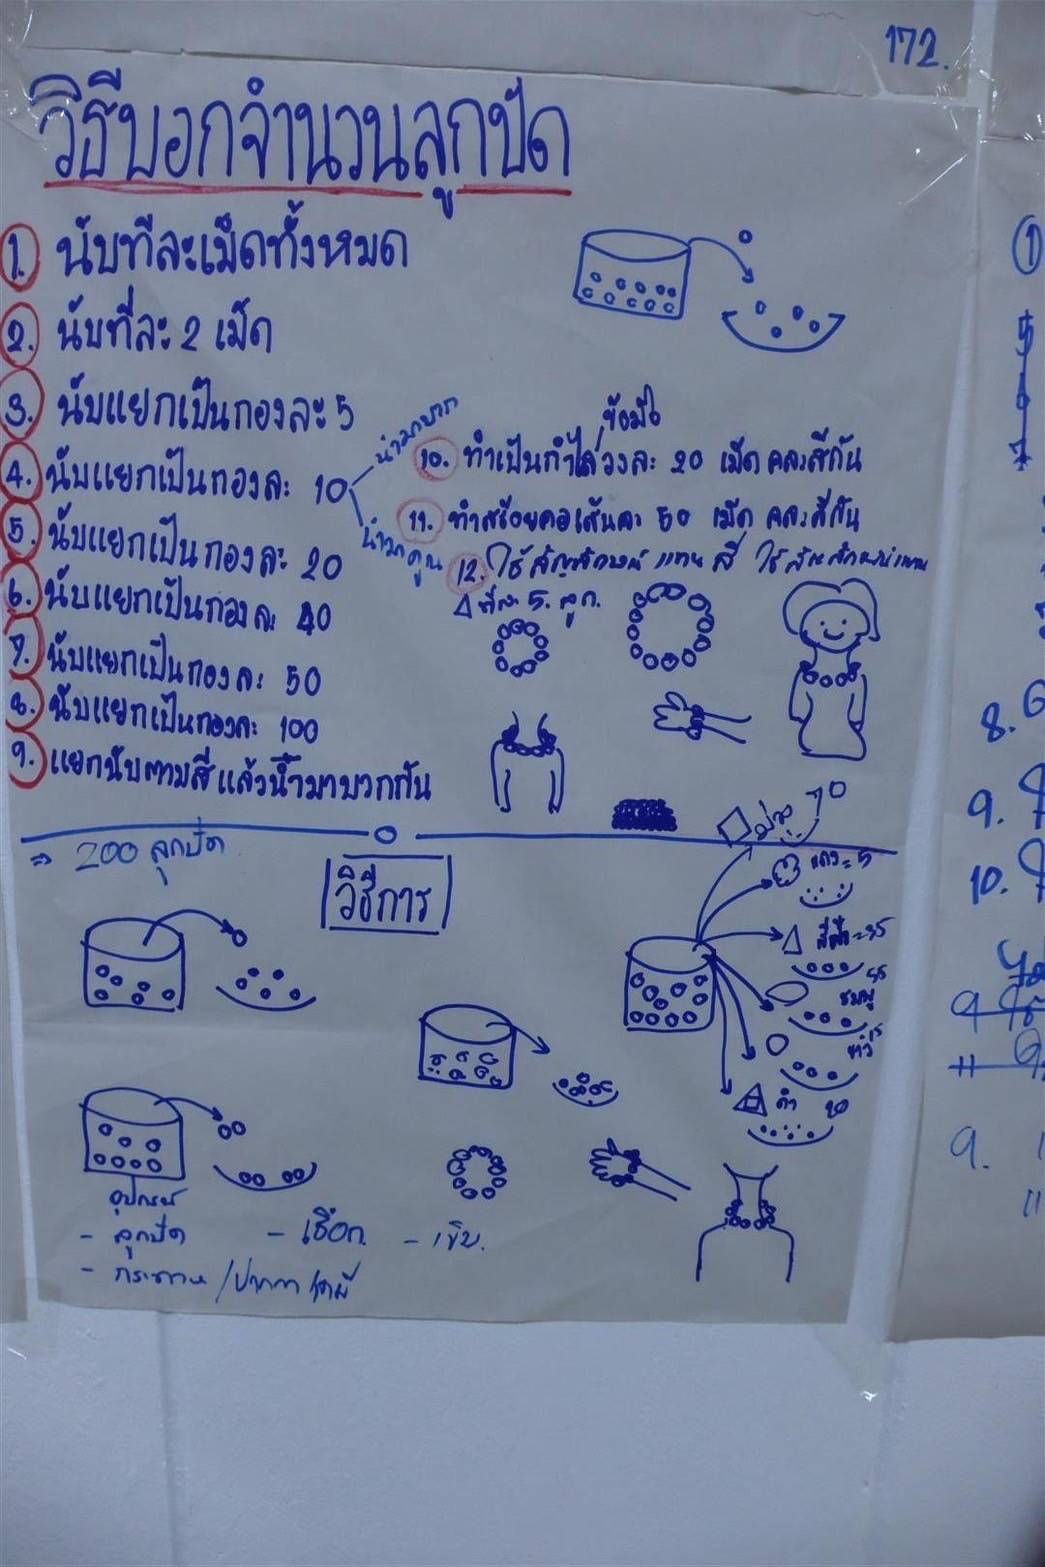 172.
วิธีบอกจำนวนลูกปัด
1. นับทีละเม็ดทั้งหมด
2. นับทีละ 2 เม็ด
3. นับแยกเป็นกองละ 5
4. นับแยกเป็นกองละ 10
นำมาบวก
นำมาคูณ
5. นับแยกเป็นกองละ 20
6. นับแยกเป็นกองละ 40
7. นับแยกเป็นกองละ 50
8. นับแยกเป็นกองละ 100
9. แยกนับตามสีแล้วนำมาบวกกัน
ข้อมือ
10. ทำเป็นกำไลวงละ 20 เม็ด คละสีกัน
11. ทำสร้อยคอเส้นละ 50 เม็ด คละสีกัน
12. ใช้สัญลักษณ์แทนสี ใช้สัญลักษณ์แทน
△ ทีละ 5 ลูก.
⇒ 200 ลูกปัด
วิธีการ
ม่วง 70
แดง = 5
สีฟ้า = 35
ชมพู
ดำ 20
อุปกรณ์
- ลูกปัด
- เชือก
- เข็ม.
- กระดาษ / ปากกาเคมี
1
8.
9.
10.
9.